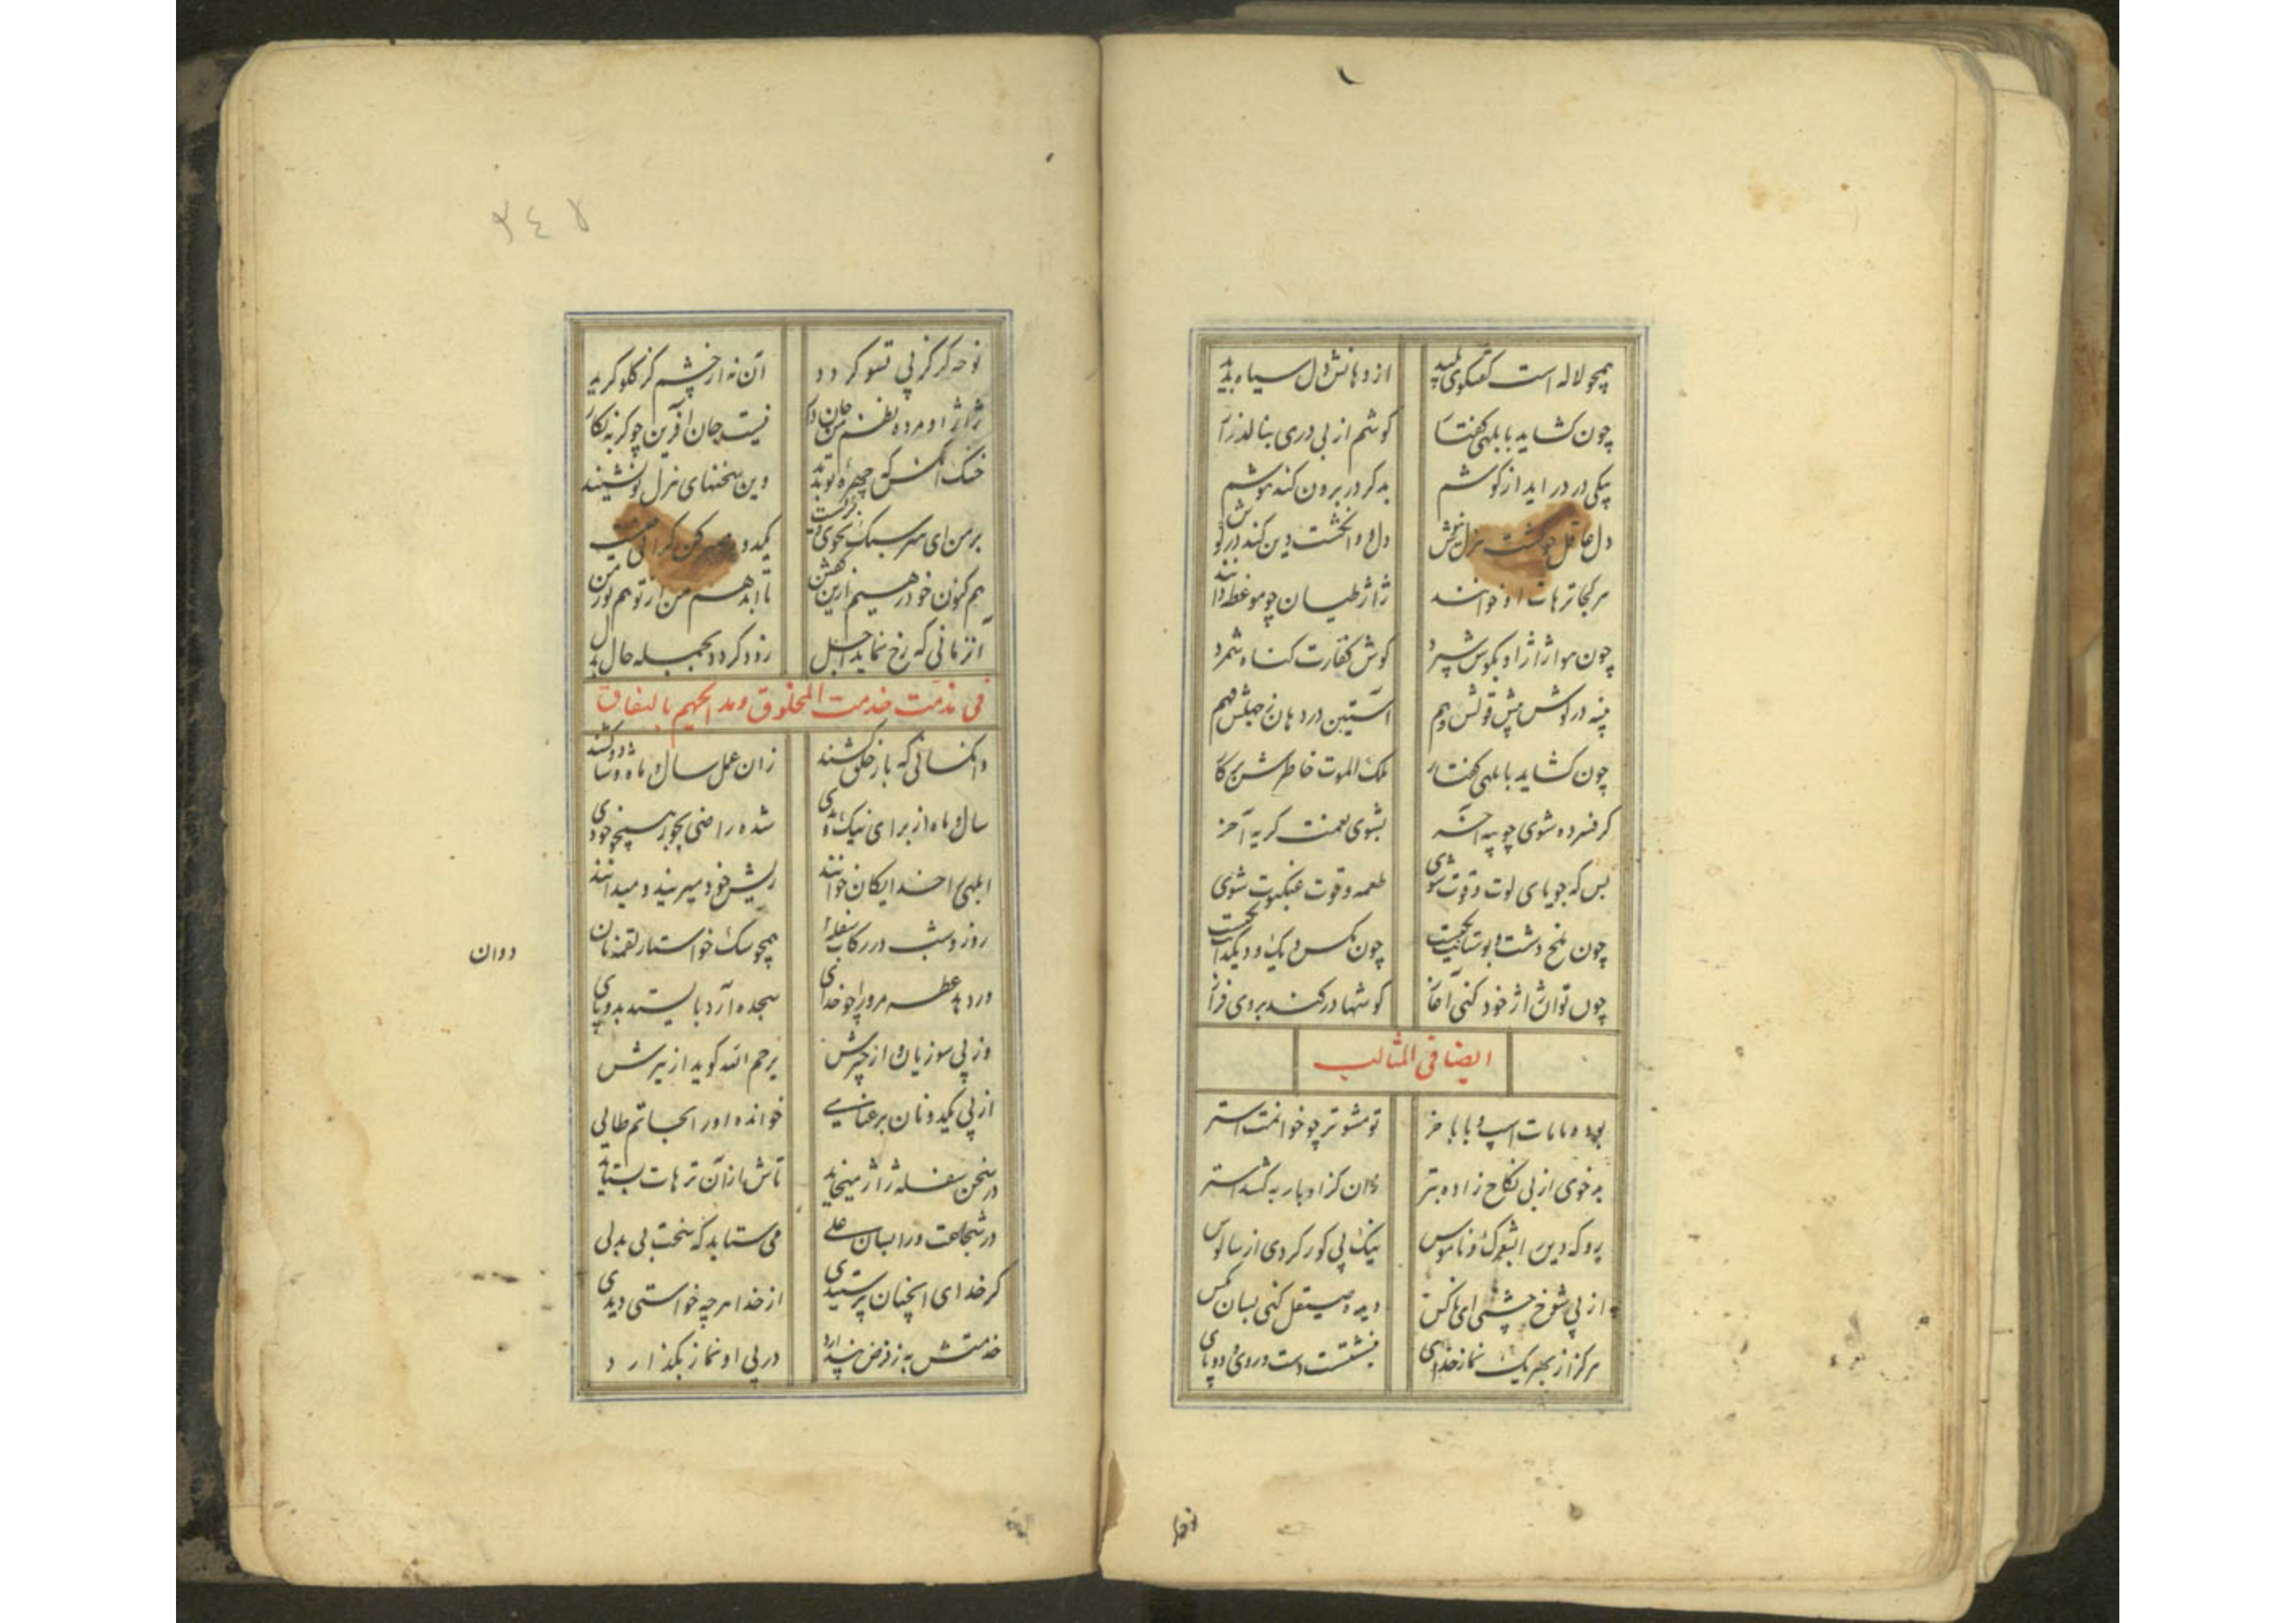 همچو لاله است گفتگوی پلید از دهانش دل سیاه پدید
چون گشاید بابلهی گفتار گوشم از بی دری بنالد زار
پیکی در در آید از گوشم بدگر در برون کند هوشم
دل عاقل چو گشت هزل نیوش دل و دانگشت دین کند در گوش
هر کجا ترهات او خوانند ژاژ طیان چو موعظه دانند
چون هوا ژاژ او بگوش سپرد گوش کفارت گناه شمرد
پنبه در گوش پیش قولش وهم آستین در دهان ز حبلش فهم
چون گشاید بابلهی گفتار ملک الموت خاطرش بر کار
گر فسرده شوی چو پیه آخر بشوی طعمت گربه آخر
بس که جویای لوت و قوت شوی طعمه و قوت عنکبوت شوی
چون ملخ دشت و بوستانت چون مگس دیک و دیگدانت
چون تو آن ژاژ خود کنی آغاز گوشها در کند بروی فراز
ایضا فی المثالب
بوده مامات اسپ و بابا خر تو مشو تر چو خوانمت استر
بدخوی از بی نکاح زاده بتر کان گز ادبار به کشد استر
رو که دین را بشوک و ناموس نیک پی کور کردی از سالوس
از پی شوخ چشمی ای ناکس دیده صیقل کنی بسان مگس
هرگز از بهر یک نماز خدای بنشستست دست و روی و دو پای
نوحه
نوحه گر کز پی تسو گرید آن نه از چشم کز گلو گرید
ژاژ او مرده نظم من جان دار نیست جان آفرین چو گربه نگار
خنک آنکس که چهره تو ندید وین سخنهای هزل تو نشنید
بر من ای سر سبک نکوی گران یکدو
هم کنون خود رهیم ازین تا ابد هم من از تو هم تو ز من
آنزمانی که رخ نماید اجل زود گردد بجمله حال بدل
فی مذمت خدمت المخلوق و مدایحهم بالنفاق
وآنکسانی که باز خلق کشند زان عمل سال و ماه
سال و ماه از برای نیک و بدی شده راضی بجور همچو خودی
ابلهی را خدایگان خوانند ریش خود میریند و میدانند
روز و شب در رکاب سفله همچو سگ خواستار لقمه نان
دوان
ور دهد عطسه مر ورا چو خدای سجده آرد بایستد بدو پای
وز پی سوزیان و از چیرش یرحم الله گوید از تیرش
از پی یکدو نان بر عنایی خوانده او را بحاتم طایی
در سخن سفله ژاژ میخاید تاش از آن ترهات بستاید
در شجاعت ورا بسان علی می ستاید که سخت بی بدلی
گر خدای اینچنان پرستیدی از خدا هر چه خواستی دیدی
خدمتش به ز فرض پندارد در پی او نماز بگذارد